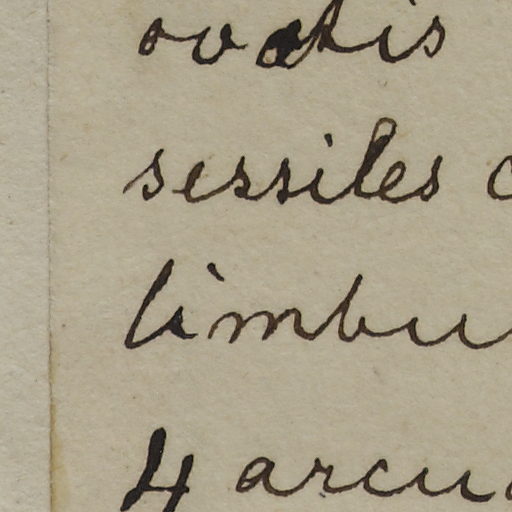 ovatis
sessiles
limbu
4 arcu